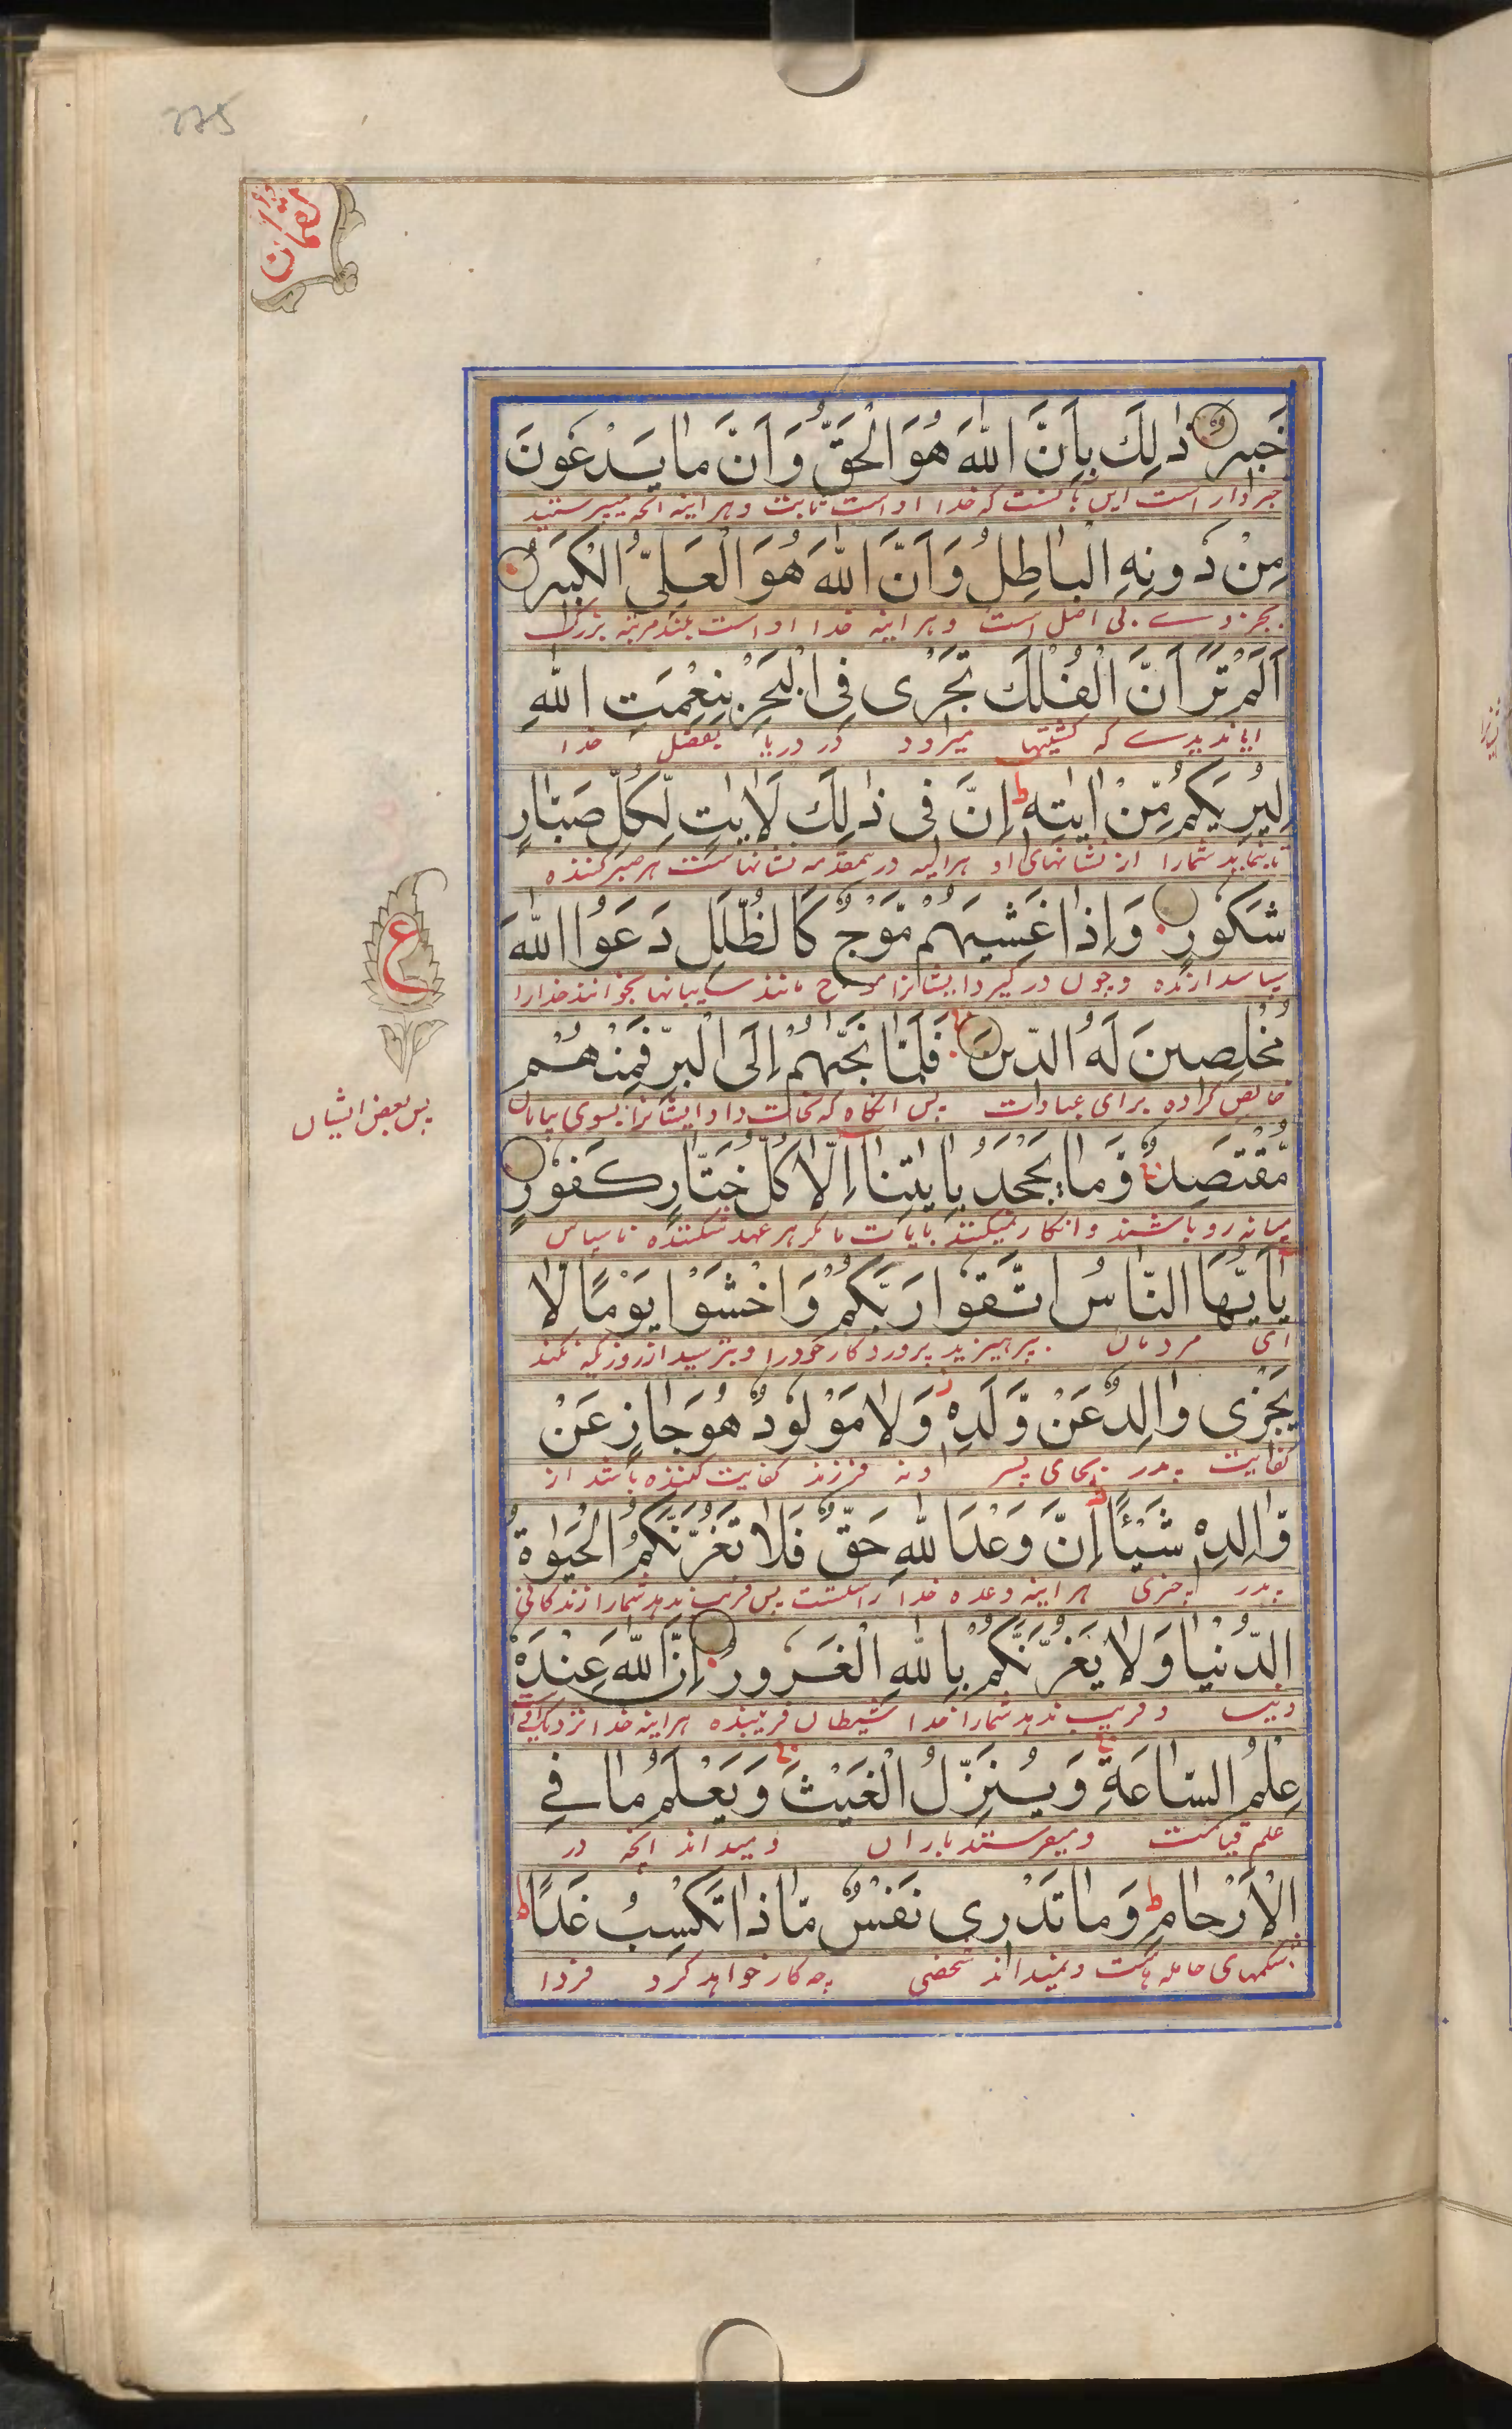 275
لقمان
خَبِيرٌ ذٰلِكَ بِاَنَّ اللّٰهَ هُوَ الْحَقُّ وَاَنَّ مٰا يَدْعُونَ
خبردار است این بآنست که خدا اوست ثابت و هر اینه آنچه میپرستید
مِنْ دُونِهِ الْبٰاطِلُ وَاَنَّ اللّٰهَ هُوَ الْعَلِىُّ الْكَبِيرُ
بجز وے بی اصل است و هر اینه خدا اوست بلند مرتبه بزرگ
اَلَمْ تَرَ اَنَّ الْفُلْكَ تَجْرِى فِى الْبَحْرِ بِنِعْمَتِ اللّٰهِ
ایا ندیدے که کشتیها میرود در دریا بفضل خدا
لِيُرِيَكُمْ مِّنْ اٰيٰتِهٖ ط اِنَّ فِى ذٰلِكَ لَاٰيٰتٍ لِّكُلِّ صَبّٰارٍ
تا بنماید شمارا از نشانهای او هراینه درینمقدمه نشانهاست هر صبر کننده
شَكُورٍ وَاِذٰا غَشِيَهُمْ مَّوْجٌ كَالظُّلَلِ دَعَوُا اللّٰهَ
سپاسدارنده و چون درگیرد ایشانرا موج مانند سایبانها بخوانند خدارا
مُخْلِصِينَ لَهُ الدِّينَ فَلَمّٰا نَجّٰىهُمْ اِلَى الْبَرِّ فَمِنْهُمْ
خالص کرده برای عبادت پس انگاه که نجات داد ایشانرا بسوی بیابان
ع
پس بعض ایشان
مُّقْتَصِدٌ وَّمٰا يَجْحَدُ بِاٰيٰتِنٰا اِلّٰا كُلُّ خَتّٰارٍ كَفُورٍ
میانه رو باشند و انکار نمیکنند بایات ما مگر هر عهد شکننده ناسپاس
يٰا اَيُّهَا النّٰاسُ اتَّقُوا رَبَّكُمْ وَاخْشَوْا يَوْمًا لّٰا
ای مردمان بپرهیزید پروردگار خودرا و بترسید از روزیکه نکند
يَجْزِى وٰالِدٌ عَنْ وَّلَدِهٖ ز وَلٰا مَوْلُودٌ هُوَ جٰازٍ عَنْ
کفایت پدر بجای پسر و نه فرزند کفایت کننده باشد از
وّٰالِدِهٖ شَيْـًٔا ط اِنَّ وَعْدَ اللّٰهِ حَقٌّ فَلٰا تَغُرَّنَّكُمُ الْحَيٰوةُ
پدر چیزی هر اینه وعده خدا راستست پس فریب ندهد شمارا زندگانی
الدُّنْيٰا وَلٰا يَغُرَّنَّكُمْ بِاللّٰهِ الْغَرُورُ اِنَّ اللّٰهَ عِنْدَهٗ
دنیا و فریب ندهد شمارا بخدا شیطان فریبنده هراینه خدا نزدیک اوست
عِلْمُ السّٰاعَةِ وَيُنَزِّلُ الْغَيْثَ وَيَعْلَمُ مٰا فِى
علم قیامت و میفرستد باران و میداند آنچه در
الْاَرْحٰامِ ط وَمٰا تَدْرِى نَفْسٌ مّٰاذٰا تَكْسِبُ غَدًا ط
شکمهای حامله هاست و نمیداند شخصی چه کار خواهد کرد فردا